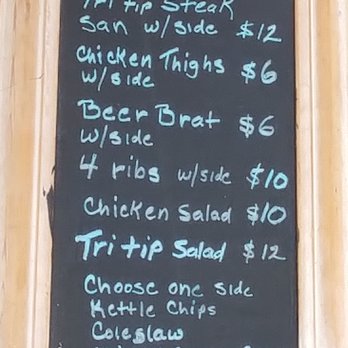 Tri tip Steak
San w/side $12
Chicken Thighs $6
w/side
Beer Brat $6
w/side
4 ribs w/side $10
Chicken Salad $10
Tri tip Salad $12
Choose one side
Kettle Chips
Coleslaw